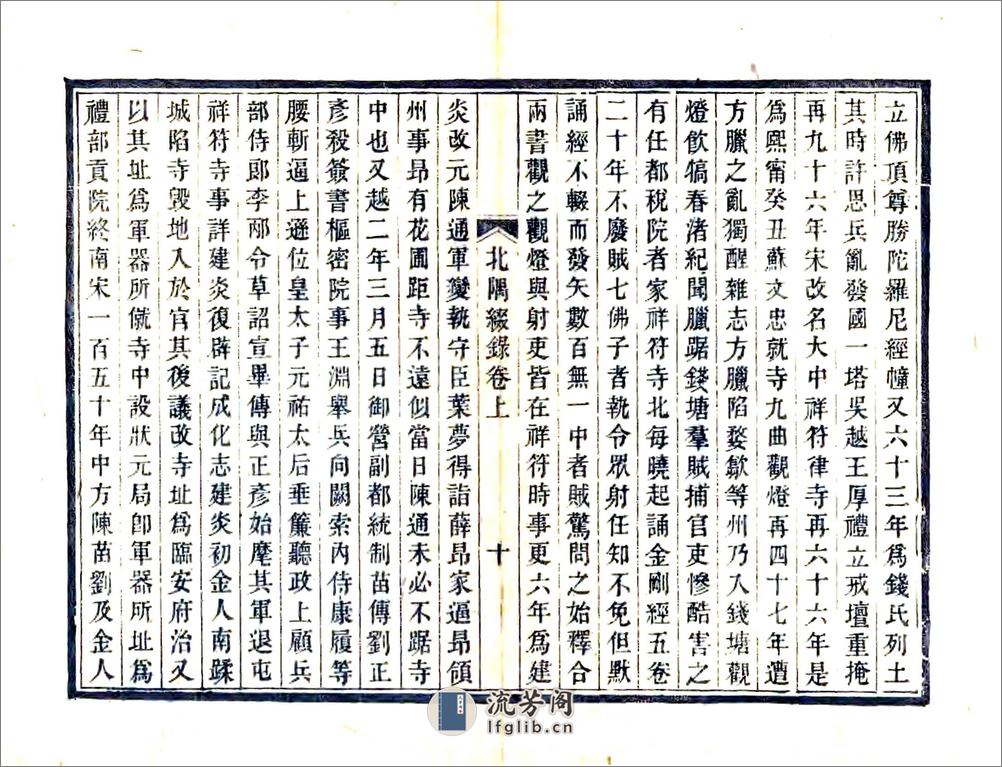 立佛頂尊勝陀羅尼經幢又六十三年爲錢氏列土
其時許思兵亂發國一塔吳越王厚禮立戒壇重掩
再九十六年宋改名大中祥符律寺再六十六年是
爲熙甯癸丑蘇文忠就寺九曲觀燈再四十七年遭
方臘之亂獨醒雜志方臘陷婺歙等州乃入錢塘觀
燈飲犒春渚紀聞臘踞錢塘羣賊捕官吏慘酷害之
有任都稅院者家祥符寺北每曉起誦金剛經五卷
二十年不廢賊七佛子者執令眾射任知不免但默
誦經不輟而發矢數百無一中者賊驚問之始釋合
兩書觀之觀燈與射吏皆在祥符時事更六年爲建
北隅綴錄卷上 十
炎改元陳通軍變執守臣葉夢得詣薛昂家逼昂領
州事昂有花圃距寺不遠似當日陳通未必不踞寺
中也又越二年三月五日御營副都統制苗傅劉正
彥殺簽書樞密院事王淵舉兵向闕索內侍康履等
腰斬逼上遜位皇太子元祐太后垂簾聽政上顧兵
部侍郎李邴令草詔宣畢傅與正彥始麾其軍退屯
祥符寺事詳建炎復辟記成化志建炎初金人南蹂
城陷寺毀地入於官其後議改寺址爲臨安府治又
以其址爲軍器所僦寺中設狀元局卽軍器所址爲
禮部貢院終南宋一百五十年中方陳苗劉及金人
流芳阁
lfglib.cn